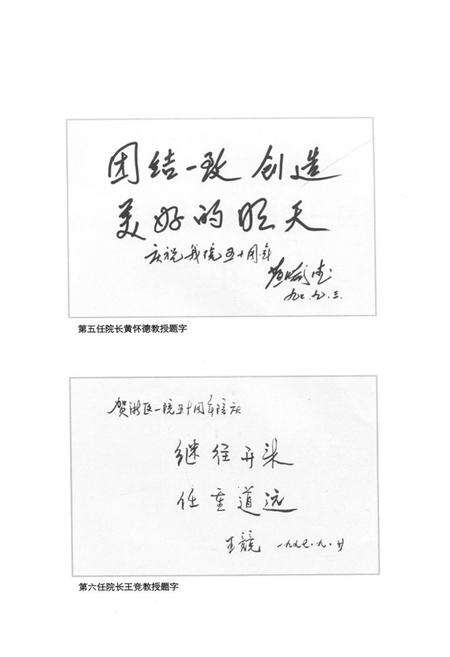 团结一致 创造
美好的明天
庆祝我院五十周年
黄怀德
九七.九.三.
第五任院长黄怀德教授题字
贺浙医一院五十周年院庆
继往开来
任重道远
王竞 一九九七.九.
第六任院长王竞教授题字